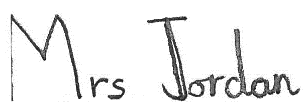 Mrs Jordan